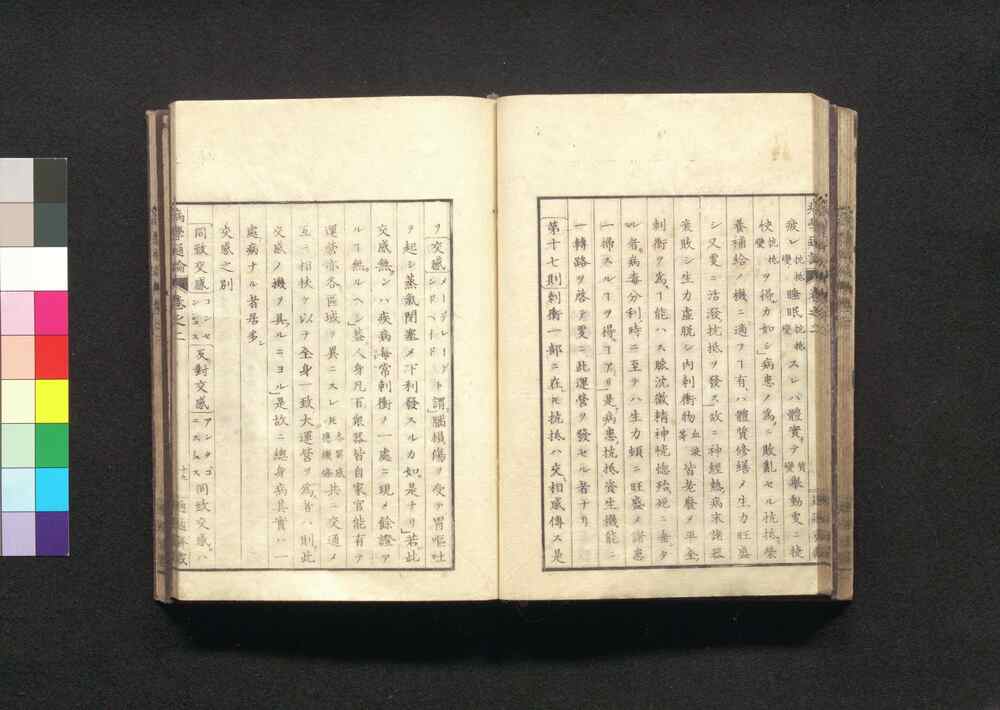 疲レ抗抵變睡眠抗抵變スレハ體實テ質變擧動爰ニ快
快抗抵變ヲ得ルカ如シ病患ノ爲ニ敗亂セル抗抵榮
養補給ノ機ニ適フヿ有レハ體質修繕メ生力旺盛
シ又爰ニ活潑抗抵ヲ發ス故ニ神經熱病末諸器
衰敗シ生力虛脱シ內刺衝物血液等皆老廢メ平全
刺衝ヲ爲ヿ能ハス脈沈微精神恍惚殆死ニ垂タ
ル者病毒分利時ニ至テハ生力頓ニ旺盛メ諸患
一掃スルヿヲ得ルヿアリ是病患抗抵資生機能ニ
一轉路ヲ啓テ爰ニ此運營ヲ發セル者ナリ
第十七則刺衝一部ニ在レ𪜈抗抵ハ交相感傳ス是
ヲ交感メーデレードシドヘードト謂腦損傷ヲ受テ胃嘔吐
ヲ起シ蒸氣閉塞メ下利發スルカ如是ナリ若此
交感無ンハ疾病每常刺衝ヲ一處ニ現メ餘證ア
ルヿ無ルヘシ蓋人身凡百衆器皆自家官能有テ
運營亦各區域ヲ異ニスレ𪜈共ニ交通メ
互ニ相扶ケ以テ全身一致大運營ヲ爲者ハ則此
交感ノ機ヲ具ルニヨル是故ニ總身病其實ハ一
處病ナル者居多シ
交感之別
同致交感コンセンシュス反對交感アンタゴニスミュス同致交感ハ
病學通論 卷之二
十九